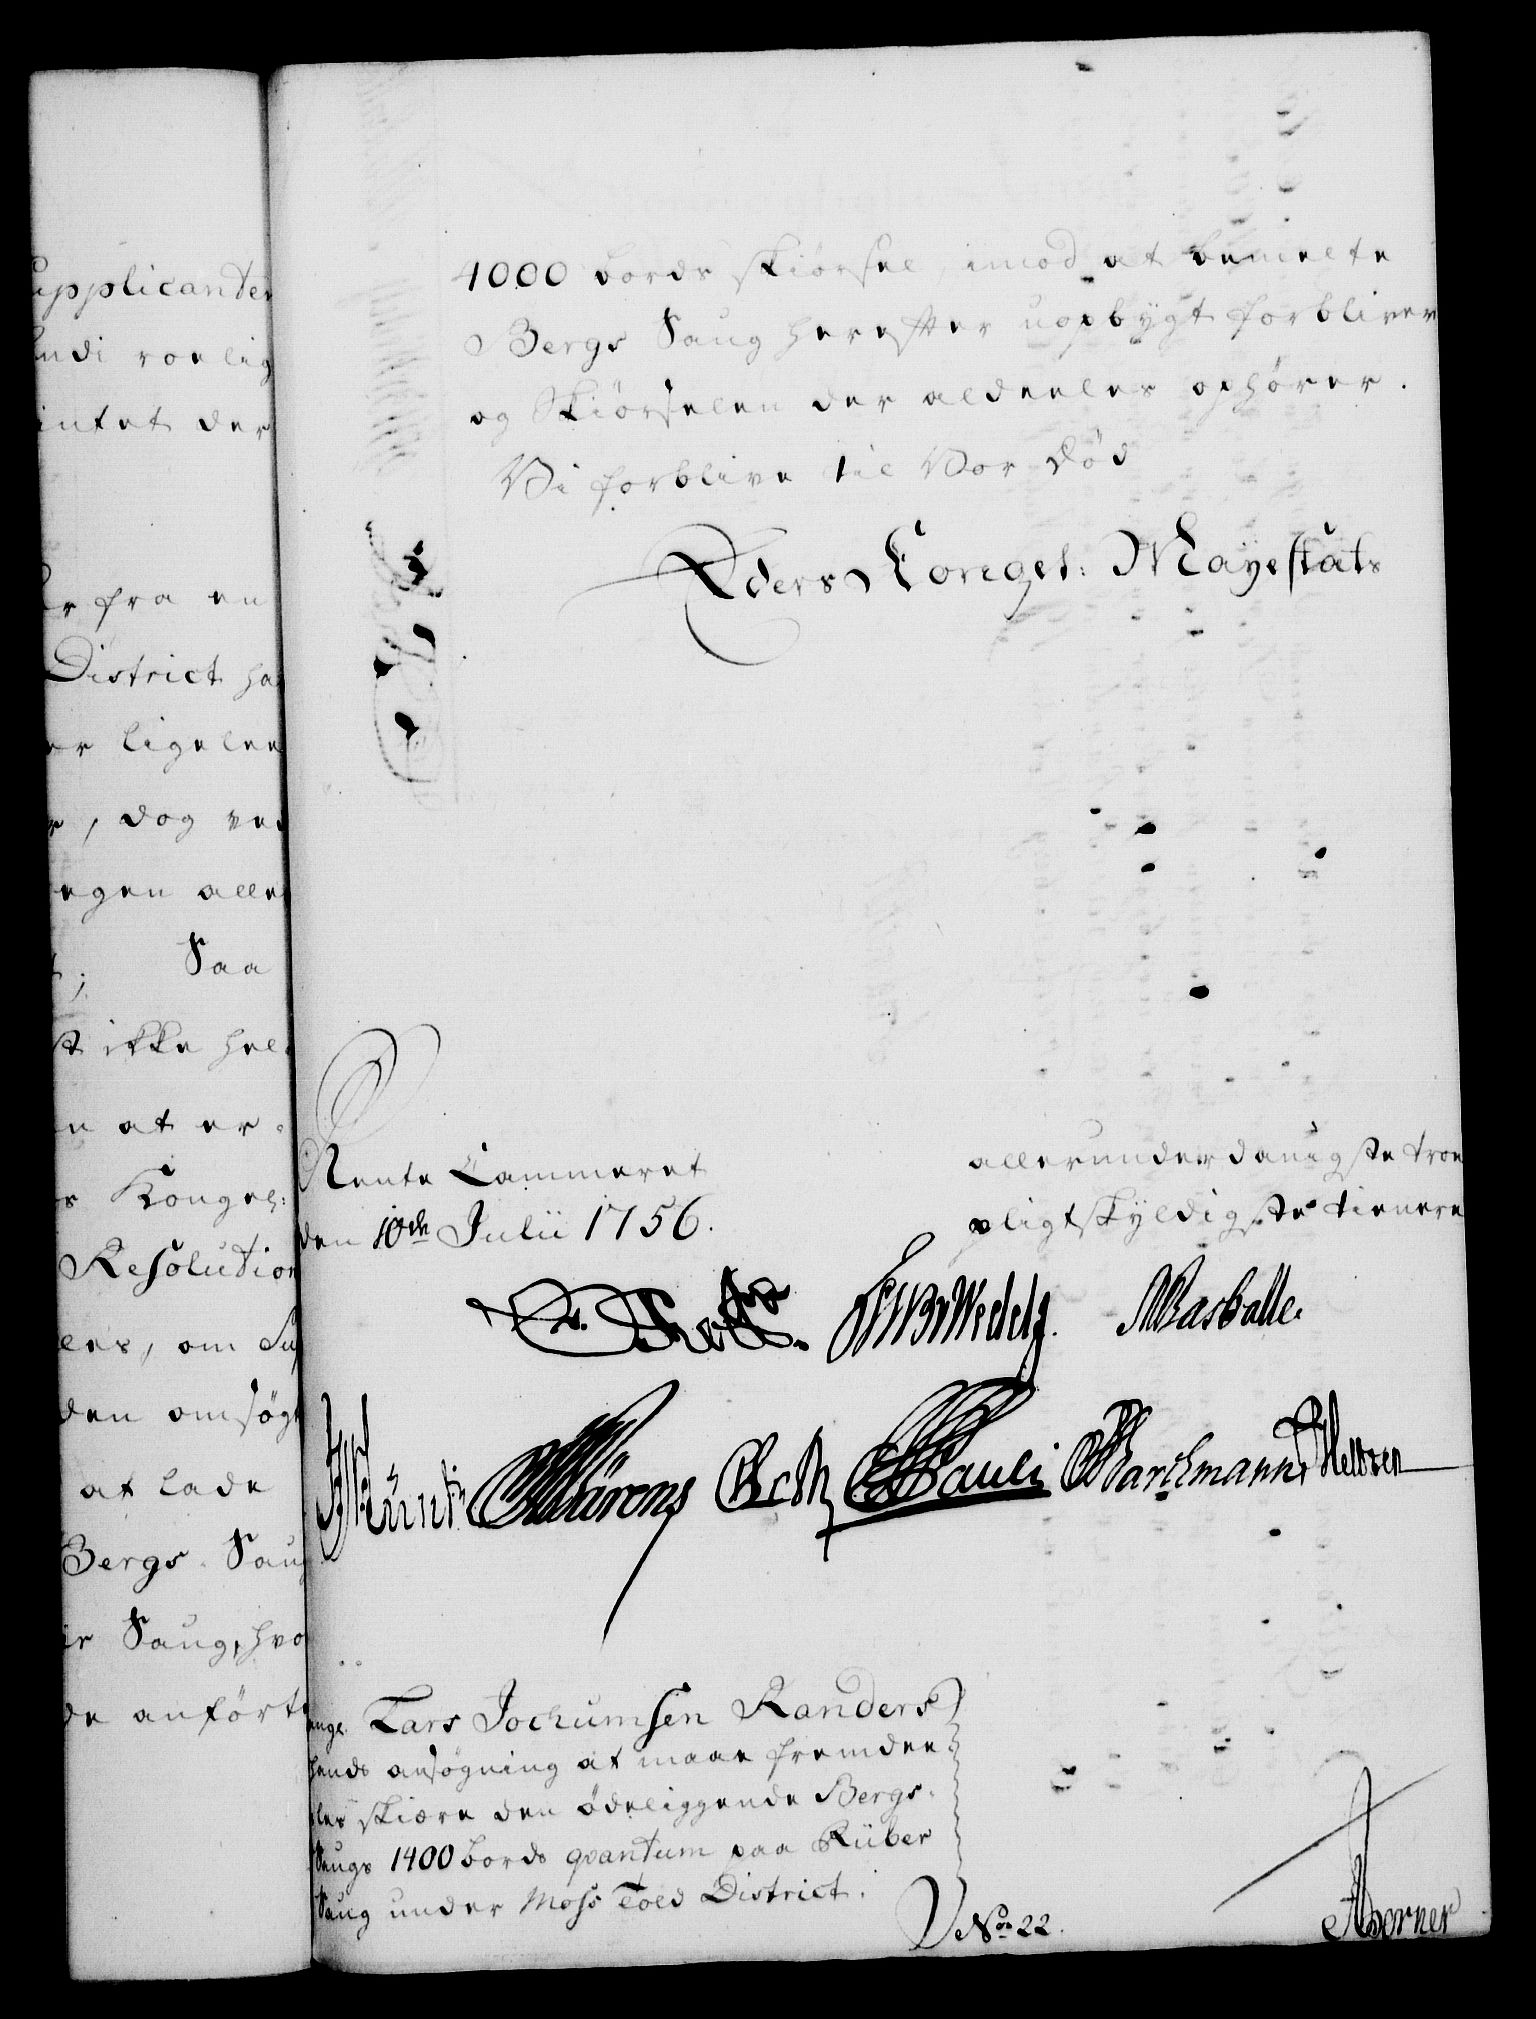 upplicanten
andi roelig
intet der
er fra en
District ha
er ligelee
, dog ved
egen alle
Saa
st ikke hel
n at er-
s Kongel:
Resolution
les, om Su
den omsøgt
at lade
Bergs Saug
er Saug, hvo
de anførte
4000 bords skiørsel, imod at bemelte
Bergs Saug herefter uopbygt forbliver
og Skiørselen der aldeeles ophører.
Vi forblive til Vor Død
Eders Kongel: Mayestäts
Rente Cammeret
den 10de Julii 1756.
allerunderdanigste troe
pligtskyldigste tienere
Wedel
Basballe.
Pauli
Barchmann
Lars Jochumsen Randers
ansøgning at maae fremdee-
les skiære den ødeliggende Bergs-
Saugs 1400 bords qvantum paa Rüber
Saug under Moss Told District.
No 22.